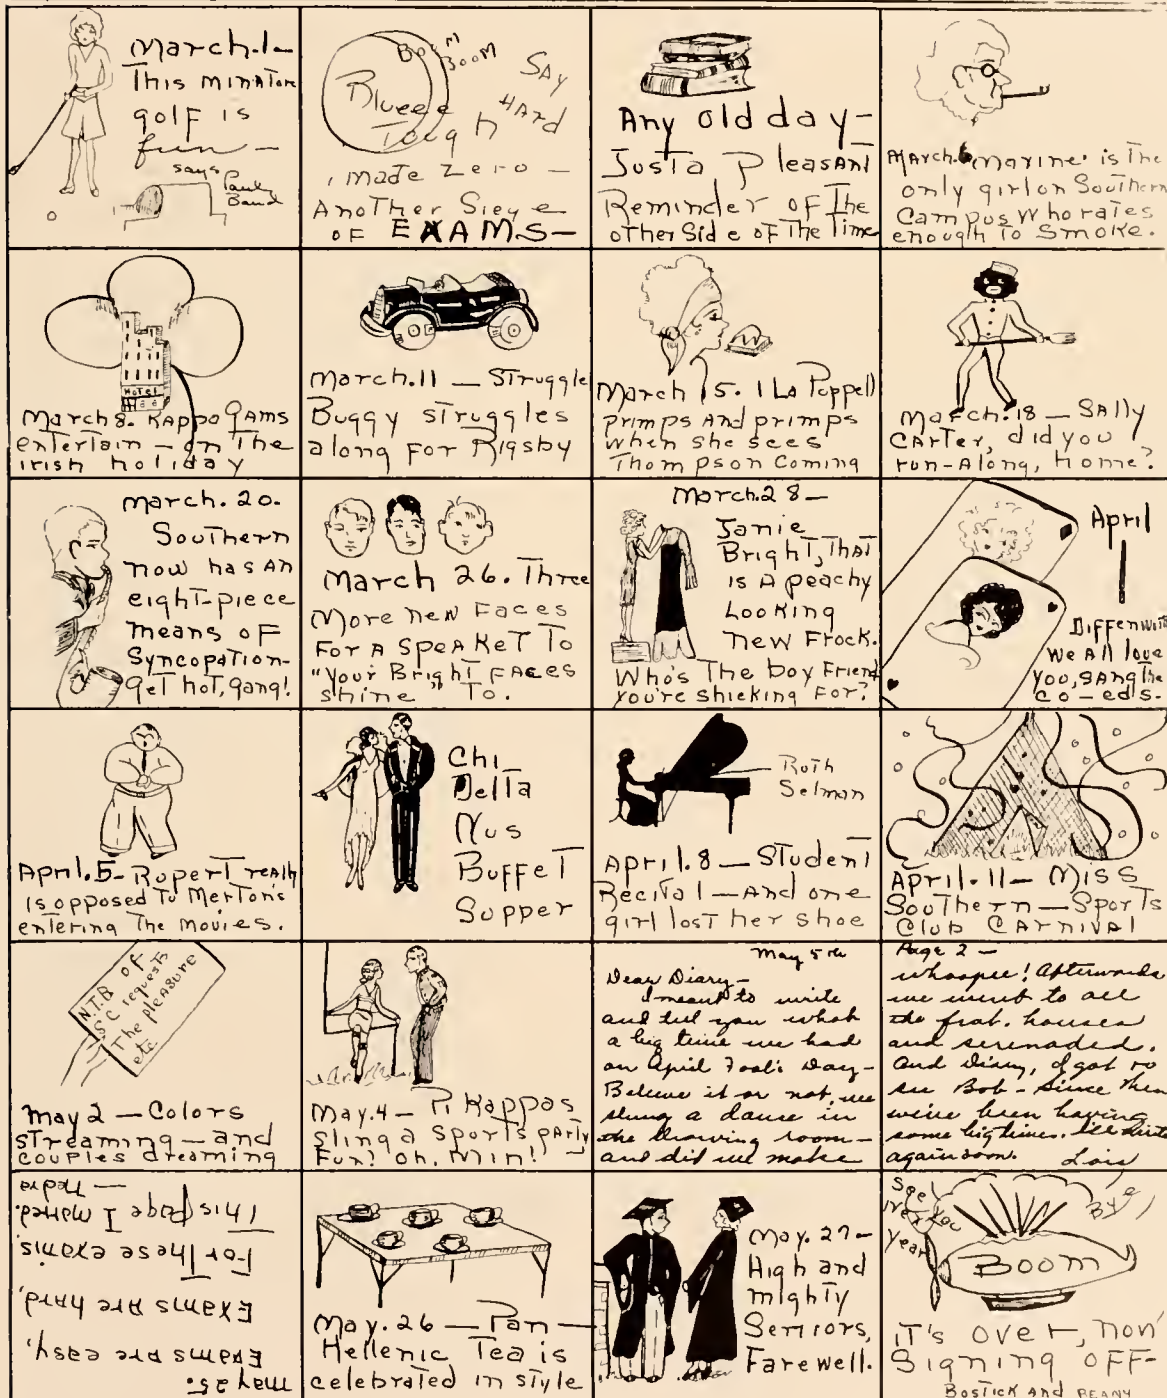 March.1-
This minature
golf is
fun-
says Pauly
Baund
BOOM
BOOM
SAY
HARD
Blueee
Tough
I made Zero -
Another Siege
of EXAMS-
Any old day-
Justa Pleasant
Reminder of The
other Side of The Time
March.6 marine is The
only girl on Southern
Campus Who rates
enough To Smoke.
HOTEL
March 8. Kappa Gams
entertain - on The
irish holiday
March.11 - Struggle
Buggy struggles
along for Rigsby
March 15. I La Puppell
primps And primps
when she sees
Thompson Coming
March.18 - Sally
Carter, did you
run-Along, home?
March. 20.
Southern
now has An
eight-piece
means of
Syncopation-
get hot, gang!
March 26. Three
More new Faces
For A SpeAkeT To
"Your BrighT FAces
shine" To.
March.28-
Janie
Bright, That
is A peachy
Looking
new Frock.
Who's The boy Friend
you're shieking For?
April
1
Diffenwith
We All love
you, sang the
co-eds-
April.5- Rupert really
is opposed To Merton's
entering The movies.
Chi
Delta
Nus
Buffet
Supper
Ruth
Selman
April.8 - Student
Recital - And one
girl lost her shoe
April.11 - Miss
Southern - Sports
Club Carnival
N.T.B of
S C requests
The pleasure
etc
May 2 - Colors
streaming - and
couples dreaming
May.4 - Pi Kappas
Sling a Sports party
Fun? Oh, Mim!
May 5th
Dear Diary-
I meant to write
and tell you what
a big time we had
on April Fool's Day-
Believe it or not, we
slung a dance in
the drawing room-
and did we make
Page 2 -
whoopee! Afterwards
we went to all
the frat. houses
and serenaded.
And Diary, I got to
see Bob - Since then
we've been having
some big times. I'll write
again soon. Lois
May 25.
Exams are easy,
Exams are hard,
For These exams
This page I marred.
- Hedra
May.26 - Pan-
Hellenic Tea is
celebrated in style
May.27-
High and
mighty
Seniors,
Farewell.
See you
next
year
Bye
Boom
IT'S over, now
Signing OFF-
Bostick And BEANY